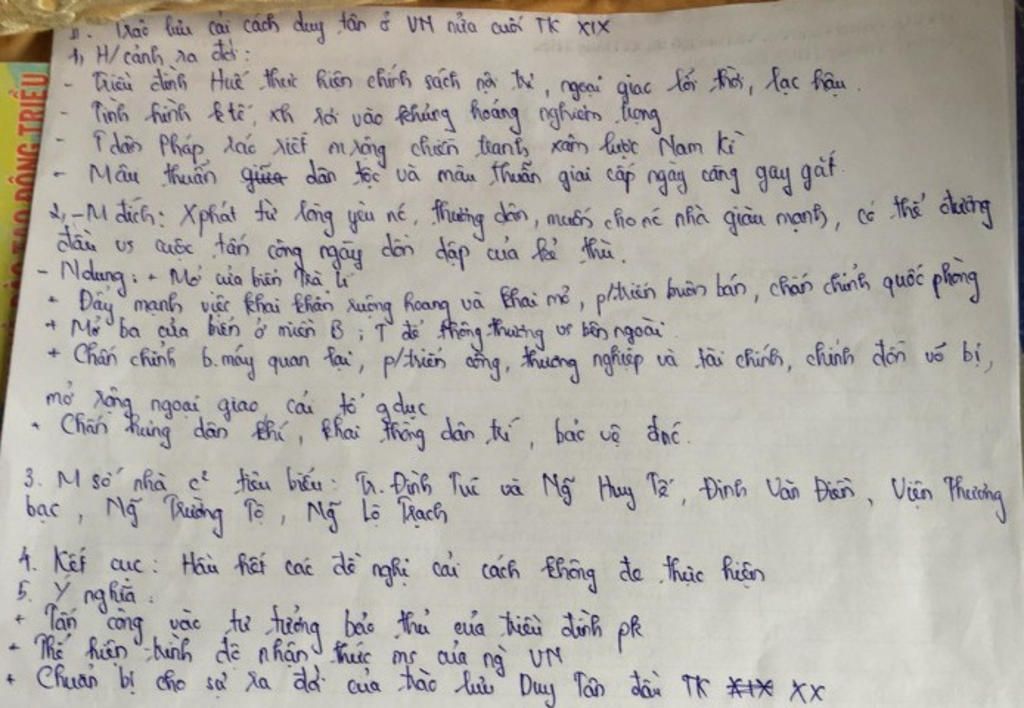 II. Trào lưu cải cách duy tân ở VN nửa cuối TK XIX
1, H/cảnh ra đời:
- Triều đình Huế thực hiện chính sách nội trị, ngoại giao lỗi thời, lạc hậu.
- Tình hình ktế, xh rơi vào khủng hoảng nghiêm trọng
- Tdân Pháp ráo riết m rộng chiến tranh xâm lược Nam Kì
- Mâu thuẫn giữa dân tộc và mâu thuẫn giai cấp ngày càng gay gắt.
2, - M đích: Xphát từ lòng yêu nc, thương dân, muốn cho nc nhà giàu mạnh, có thể đương
đầu vs cuộc tấn công ngày dồn dập của kẻ thù.
- Ndung: + Mở cửa biển Trà Lí
+ Đẩy mạnh việc khai khẩn ruộng hoang và khai mỏ, p/triển buôn bán, chấn chỉnh quốc phòng
+ Mở ba cửa biển ở miền B, T để thông thương vs bên ngoài.
+ Chấn chỉnh b.máy quan lại, p/triển công, thương nghiệp và tài chính, chỉnh đốn võ bị,
mở rộng ngoại giao, cải tổ gdục
+ Chấn hưng dân khí, khai thông dân trí, bảo vệ đnc.
3. M số nhà c² tiêu biểu: Tr. Đình Túc và Ng~ Huy Tế, Đinh Văn Điền, Viện Thương
bạc, Ng~ Trường Tộ, Ng~ Lộ Trạch
4. Kết cục: Hầu hết các đề nghị cải cách không đc thực hiện
5. Ý nghĩa:
+ Tấn công vào tư tưởng bảo thủ của triều đình pk
+ Thể hiện trình độ nhận thức ms của ng VN
+ Chuẩn bị cho sự ra đời của trào lưu Duy Tân đầu TK XIX XX
ĐÔNG TRIỀU